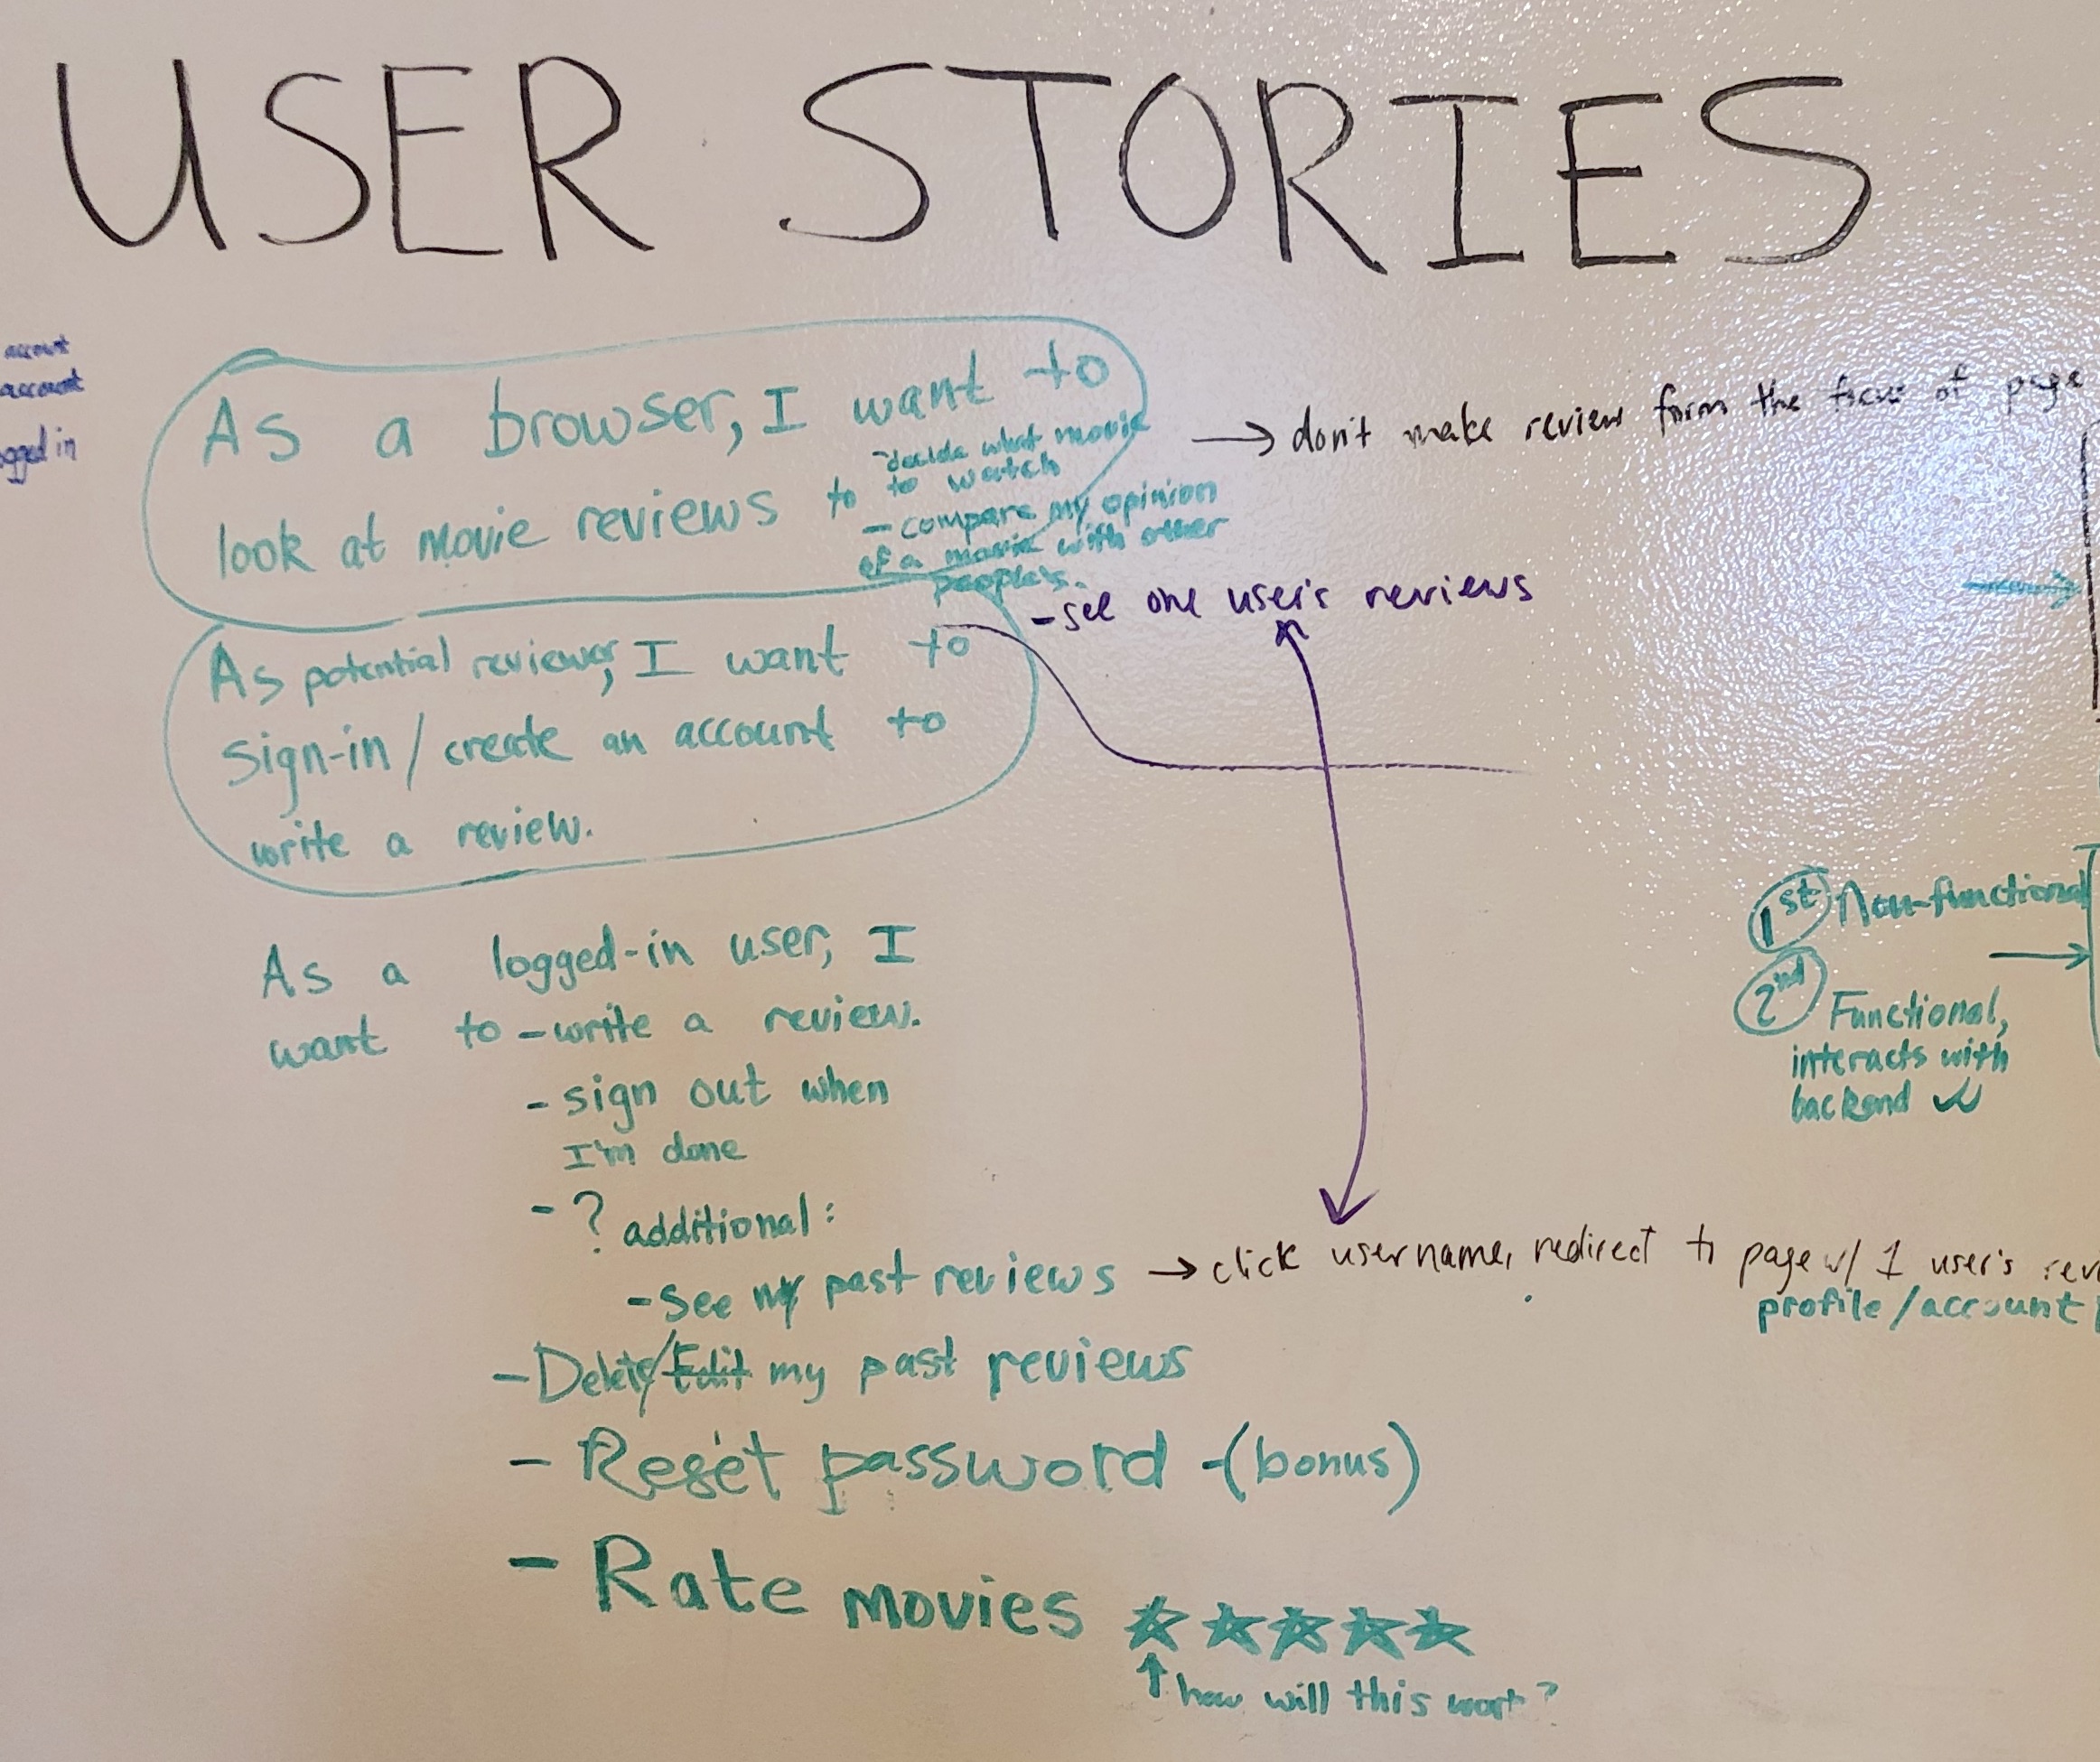 USER STORIES
account
account
logged in
As a browser, I want to
look at movie reviews to
- decide what movie
to watch
- compare my opinion
of a movie with other
people's.
- see one user's reviews
→ don't make review form the focus of page
As potential reviewer, I want to
sign-in / create an account to
write a review.
As a logged-in user, I
want to - write a review.
- sign out when
I'm done
- ? additional:
- See my past reviews → click username, redirect to page w/ 1 user's rev
profile/account
- Delete/Edit my past reviews
- Reset password - (bonus)
- Rate movies ☆☆☆☆☆
↑ how will this work?
1st Non-functional
2nd Functional,
interacts with
backend